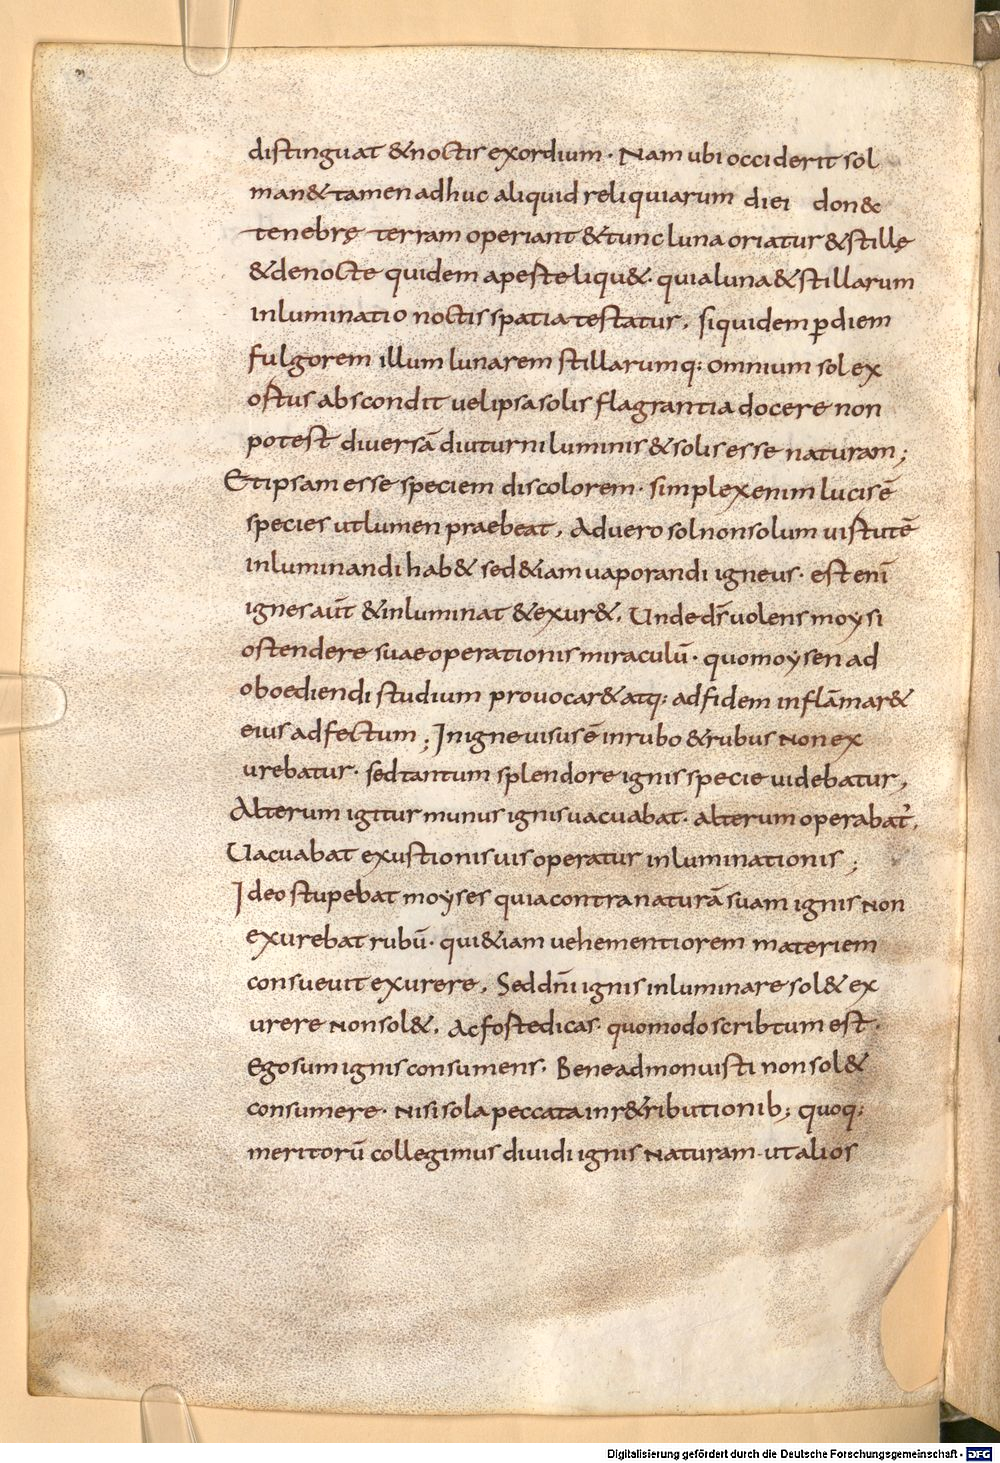 distinguat & noctis exordium · Nam ubi occiderit sol
man& tamen adhuc aliquid reliquiarum diei don&
tenebrę terram operiant & tunc luna oriatur & stillę
& denocte quidem apeste liqu& · quia luna & stillarum
inluminatio noctis spatia testatur, siquidem ꝑ diem
fulgorem illum lunarem stillarumq: omnium sol ex
ostus abscondit uel ipsa solis flagrantia docere non
potest diversā diuturni luminis & solis esse naturam;
Et ipsam esse speciem discolorem · simplex enim lucis ē
species ut lumen praebeat, Aduero sol non solum uistutē
inluminandi hab& sed &iam uaporandi igneus · est enī
ignes aūt & inluminat & exur&, Unde dś uolens moysi
ostendere suae operationis miraculū · quo moysen ad
oboediendi studium provocar& atq: ad fidem inflāmar&
eius adfectum; In igne uisus ē in rubo & rubus Non ex
urebatur · sed tantum splendore ignis specie uidebatur,
Alterum igitur munus ignis uacuabat · alterum operabat᾿,
Uacuabat exustionis uis operatur inluminationis;
Ideo stupebat moyses quia contra naturā suam ignis Non
exurebat rubū · qui &iam uehementiorem materiem
consueuit exurere, Sed dn̄i ignis inluminare sol& ex
urere Non sol&, Ac fostedicas · quomodo scribtum est ·
Ego sum ignis consumens · Bene admonuisti non sol&
consumere · Nisi sola peccata in r&ributionib; quoq:
meritorū collegimus diuidi ignis Naturam · ut alios
Digitalisierung gefördert durch die Deutsche Forschungsgemeinschaft - DFG